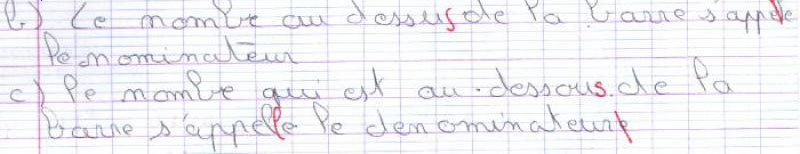 b) Le nombre au dessus de la barre s'appelle
le nominateur
c) le nombre qui est au-dessous de la
barre s'appelle le denominateur